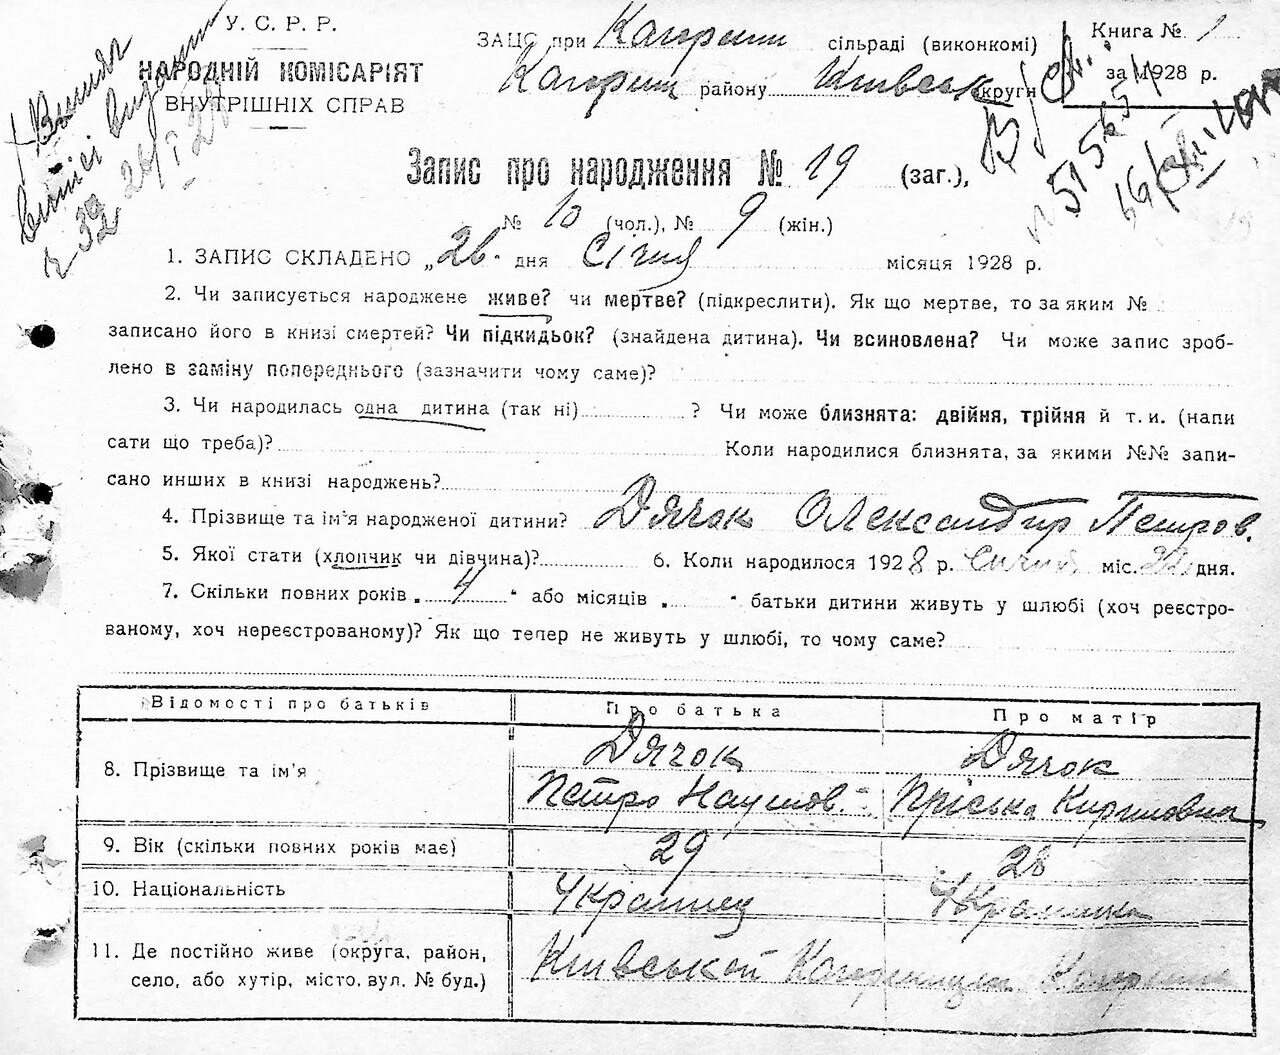 У. С. Р. Р.
НАРОДНІЙ КОМІСАРІЯТ
ВНУТРІШНІХ СПРАВ
ЗАЦС при Кагорлик сільраді (виконкомі)
Кагорлик району Київськ округи
Книга № 1
за 1928 р.
Запис про народження № 19 (заг.),
№ 10 (чол.), № 9 (жін.)
1. ЗАПИС СКЛАДЕНО „26" дня Січня місяця 1928 р.
2. Чи записується народжене живе? чи мертве? (підкреслити). Як що мертве, то за яким №
записано його в книзі смертей? Чи підкидьок? (знайдена дитина). Чи всиновлена? Чи може запис зроб-
лено в заміну попереднього (зазначити чому саме)?
3. Чи народилась одна дитина (так ні) ? Чи може близнята: двійня, трійня й т. и. (напи
сати що треба)? Коли народилися близнята, за якими №№ запи-
сано инших в книзі народжень?
4. Прізвище та ім'я народженої дитини? Дячок Олександир Петров.
5. Якої стати (хлопчик чи дівчина)? 6. Коли народилося 1928 р. Сичня міс. 22 дня.
7. Скільки повних років „ 4 " або місяців „ " батьки дитини живуть у шлюбі (хоч реєстро-
ваному, хоч нереєстрованому)? Як що тепер не живуть у шлюбі, то чому саме?
Відомості про батьків Про батька Про матір
8. Прізвище та ім'я Дячок Петро Наумов. Дячок Пріська Кириловна
9. Вік (скільки повних років має) 29 28
10. Національність Українец Українка
11. Де постійно живе (округа, район,
село, або хутір, місто, вул. № буд.) Київської Кагорлицьк Кагорлик